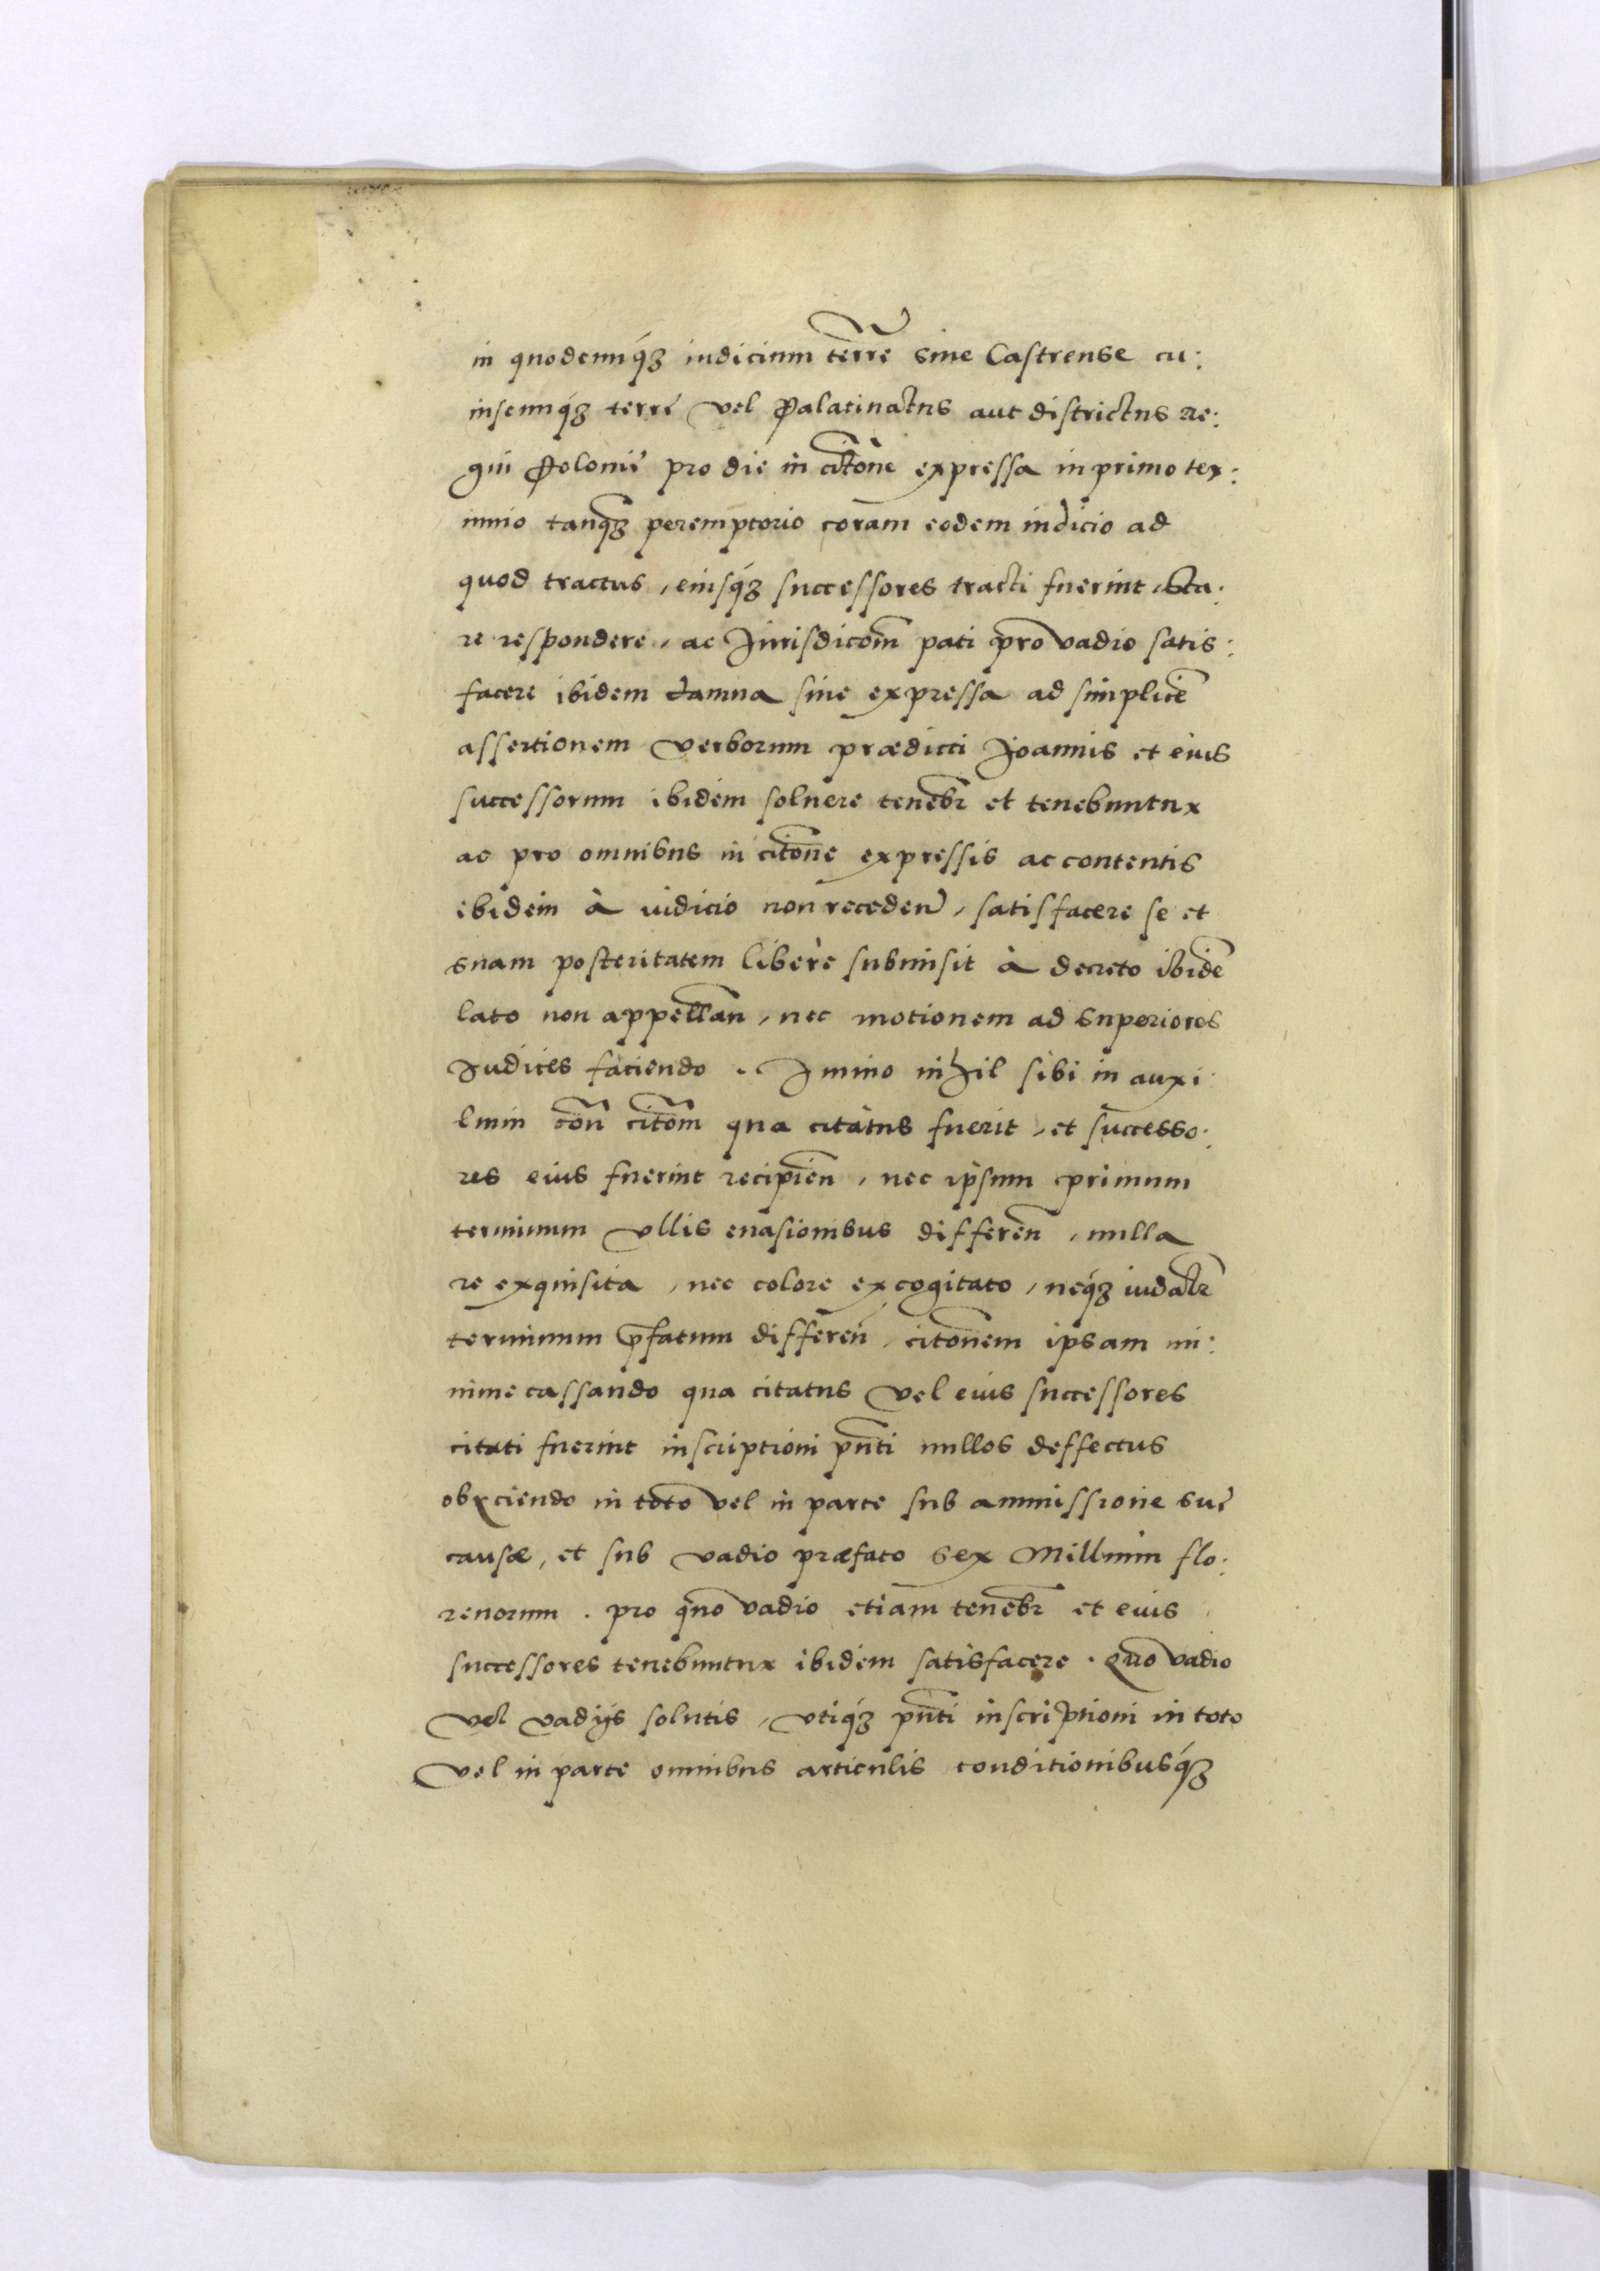 in quodcunq́ꝫ iudicium terr̃e siue Castrense cu:
iuscunq́ꝫ terrę vel Palatinatus aut districtus Re:
gni Polonię pro die in cit̃one expressa in primo ter:
mino tanq̃ꝫ peremptorio coram eodem iudicio ad
quod tractus, eiusq́ꝫ successores tracti fuerint sta:
re respondere, ac Jurisdicõm pati pro vadio satis:
facere ibidem damna siue expressa ad simplicẽ
assertionem verborum prædicti Joannis et eius
successorum ibidem soluere teneb̃r et tenebuntur
ac pro omnibus in cit̃one expressis ac contentis
ibidem à iudicio non receden̄, satisfacere se et
suam posteritatem liberè submisit à decreto ibidẽ
lato non appellañ, nec motionem ad superiores
Judices faciendo. Immo nihil sibi in auxi:
lium coñ cit̃om qua citatus fuerit, et successo:
res eius fuerint recipieñ, nec ipsum primum
terminum vllis euasionibus differeñ, nulla
re exquisita, nec colore excogitato, neq́ꝫ iudalr̃
terminum p̃fatum differeñ, citõnem ipsam mi:
nime cassando qua citatus vel eius successores
citati fuerint inscriptioni pñti nullos deffectus
obijciendo in toto vel in parte sub ammissione suę
causæ, et sub vadio præfato sex Millium flo:
renorum. pro quo vadio etiam teneb̃r et eius
successores tenebuntur ibidem satisfacere. Quo vadio
vel vadijs solutis, vtiq́ꝫ pñti inscriptioni in toto
vel in parte omnibus articulis conditionibusq́ꝫ